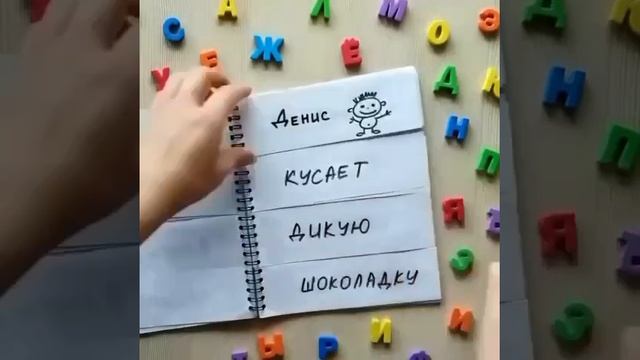 Денис
кусает
дикую
шоколадку